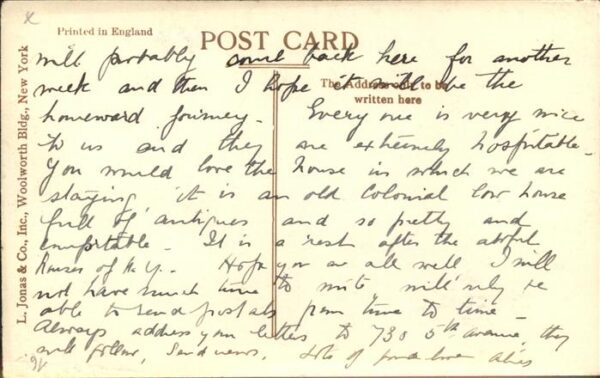 x
Printed in England
POST CARD
The Address only to be
written here
L. Jonas & Co., Inc., Woolworth Bldg., New York
will probably come back here for another
week and then I hope it will be the
homeward journey. Everyone is very nice
to us and they are extremely hospitable.
You would love the house in which we are
staying, it is an old Colonial low house
full of antiques and so pretty and
comfortable. It is a rest after the awful
houses of N.Y. Hope you are all well I will
not have much time to write will only be
able to send postals from time to time –
Always address your letters to 730 5th Avenue, they
will follow, Send news. Lots of fond love